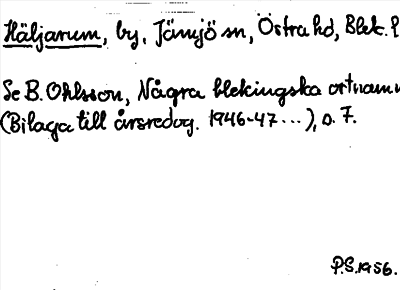 Häljarum, by, Jämjö sn, Östra hd, Blek. l
Se B. Ohlsson, Några blekingska ortnamn
(Bilaga till årsredog. 1946-47...), s. 7.
P.S. 1956.